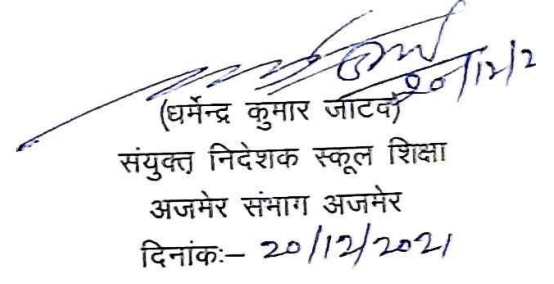 20/12/2
(धर्मेन्द्र कुमार जाटव)
संयुक्त निदेशक स्कूल शिक्षा
अजमेर संभाग अजमेर
दिनांकः– 20/12/2021